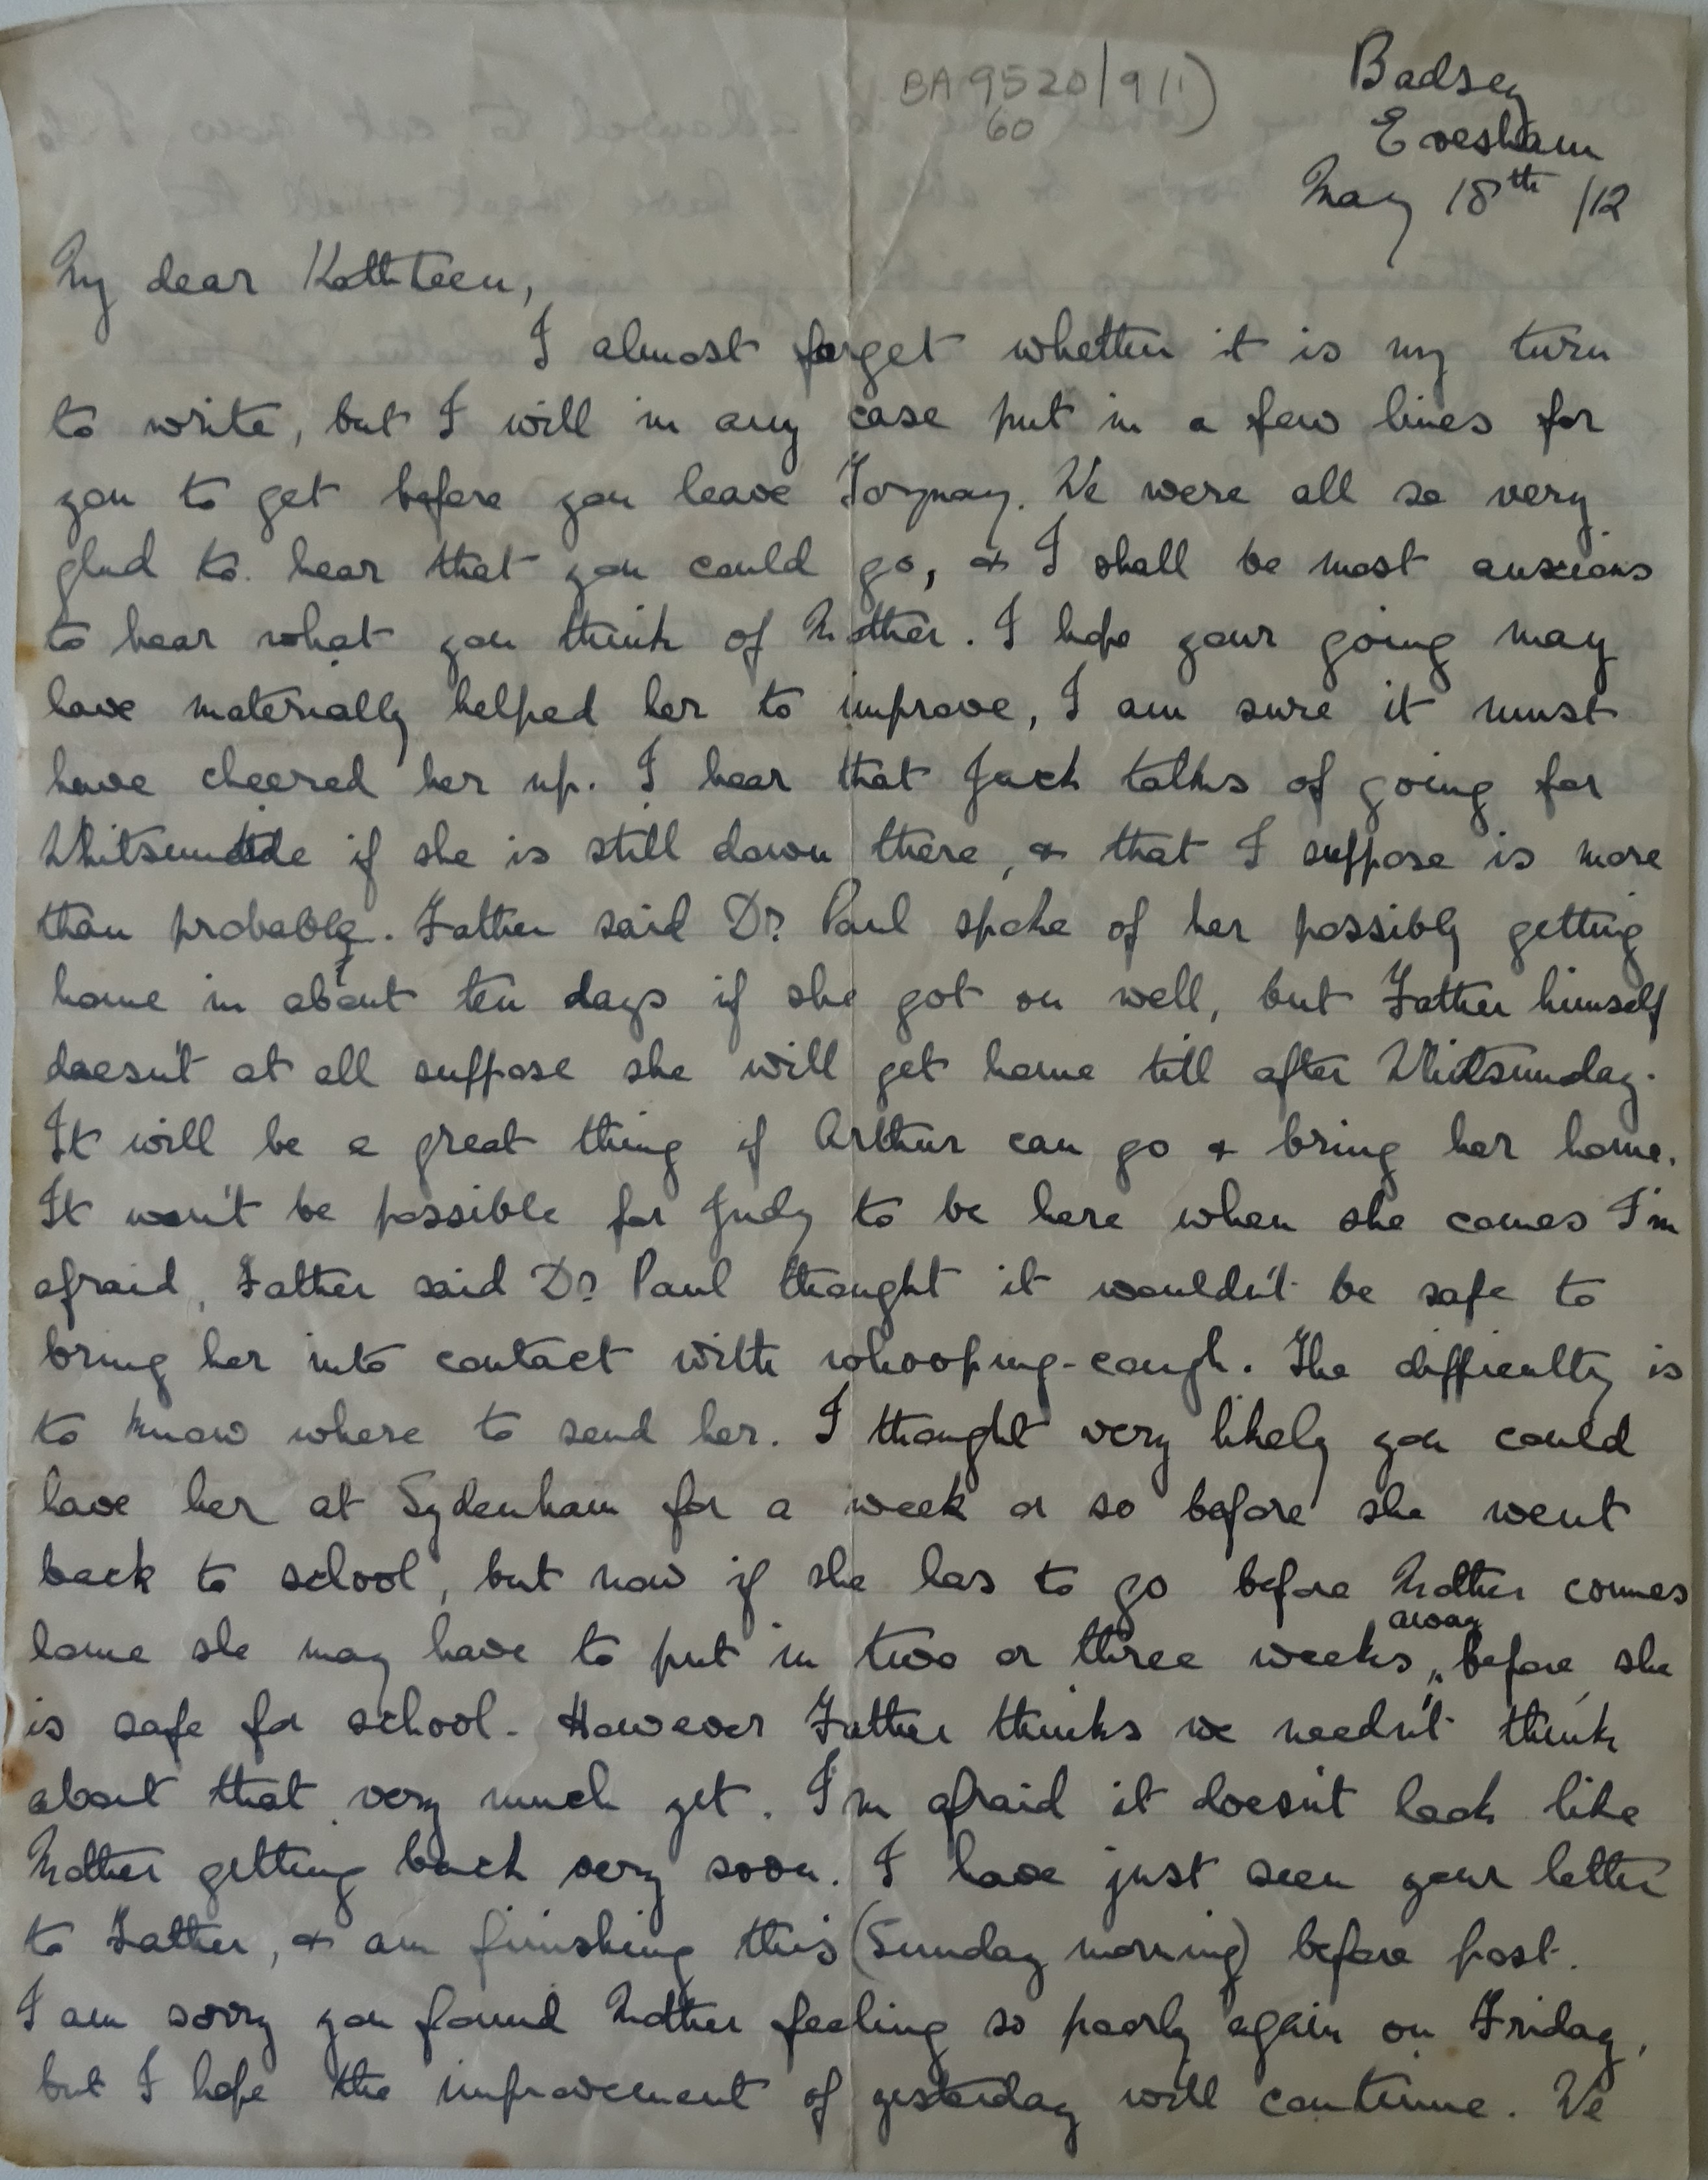 BA 9520/9 (1)
60
Badsey
Evesham
May 18th /12
My dear Kathleen,
I almost forget whether it is my turn
to write, but I will in any case put in a few lines for
you to get before you leave Torquay. We were all so very
glad to hear that you could go, & I shall be most anxious
to hear what you think of Mother. I hope your going may
have materially helped her to improve, I am sure it must
have cheered her up. I hear that Jack talks of going for
Whitsuntide if she is still down there, & that I suppose is more
than probable. Father said Dr Paul spoke of her possibly getting
home in about ten days if she got on well, but Father himself
doesn't at all suppose she will get home till after Whitsunday.
It will be a great thing if Arthur can go & bring her home.
It won't be possible for Judy to be here when she comes I'm
afraid, Father said Dr Paul thought it wouldn't be safe to
bring her into contact with whooping-cough. The difficulty is
to know where to send her. I thought very likely you could
have her at Sydenham for a week or so before she went
back to school, but now if she has to go before Mother comes
home she may have to put in two or three weeks away before she
is safe for school. However Father thinks we needn't think
about that very much yet. I'm afraid it doesn't look like
Mother getting back very soon. I have just seen your letter
to Father, & am finishing this (Sunday morning) before post.
I am sorry you found Mother feeling so poorly again on Friday,
but I hope the improvement of yesterday will continue. We